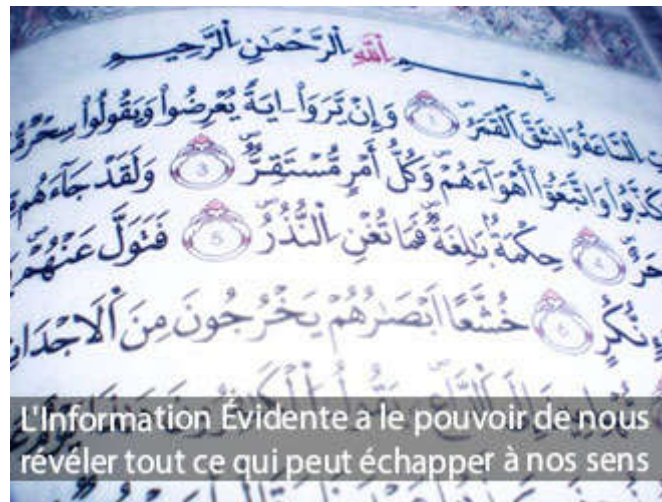 بِسْمِ اللَّهِ الرَّحْمَٰنِ الرَّحِيمِ
السَّاعَةُ وَانشَقَّ الْقَمَرُ 1 وَإِنْ يَّرَوْاْ ءَايَةً يُعْرِضُواْ وَيَقُولُواْ سِحْرٌ
وَكَذَّبُواْ وَاتَّبَعُواْ أَهْوَآءَهُمْ وَكُلُّ أَمْرٍ مُّسْتَقِرٌّ 3 وَلَقَدْ جَآءَهُم
4 حِكْمَةٌ بَٰلِغَةٌ فَمَا تُغْنِ النُّذُرُ 5 فَتَوَلَّ عَنْهُمْ
نُّكُرٍ 6 خُشَّعًا أَبْصَٰرُهُمْ يَخْرُجُونَ مِنَ الْأَجْدَاثِ
L'Information Évidente a le pouvoir de nous
révéler tout ce qui peut échapper à nos sens